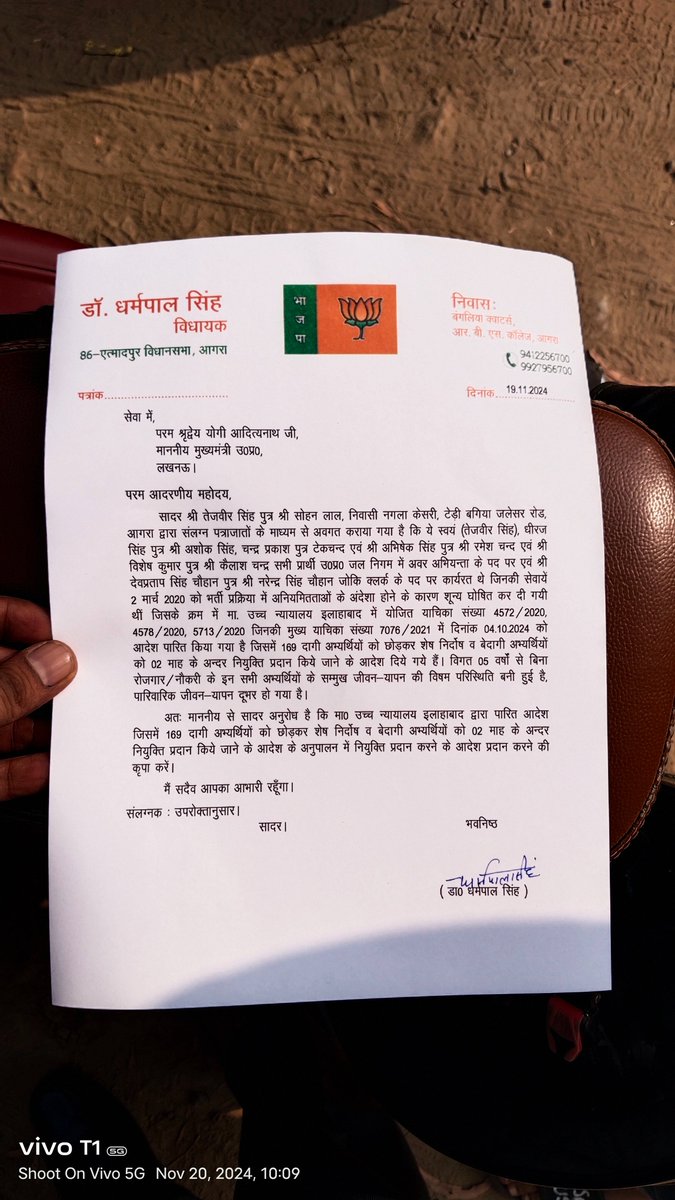 डॉ. धर्मपाल सिंह
विधायक
86-एत्मादपुर विधानसभा, आगरा
भा
ज
पा
निवास:
बंगलिया क्वाटर्स,
आर. बी. एस. कॉलेज, आगरा
9412256700
9927956700
पत्रांक..............................
दिनांक.....19.11.2024
सेवा में,
परम श्रृद्वेय योगी आदित्यनाथ जी,
माननीय मुख्यमंत्री उ0प्र0,
लखनऊ।
परम आदरणीय महोदय,
सादर श्री तेजवीर सिंह पुत्र श्री सोहन लाल, निवासी नगला केसरी, टेड़ी बगिया जलेसर रोड,
आगरा द्वारा संलग्न पत्राजातों के माध्यम से अवगत कराया गया है कि ये स्वयं (तेजवीर सिंह), धीरज
सिंह पुत्र श्री अशोक सिंह, चन्द्र प्रकाश पुत्र टेकचन्द एवं श्री अभिषेक सिंह पुत्र श्री रमेश चन्द एवं श्री
विशेष कुमार पुत्र श्री कैलाश चन्द्र सभी प्रार्थी उ0प्र0 जल निगम में अवर अभियन्ता के पद पर एवं श्री
देवप्रताप सिंह चौहान पुत्र श्री नरेन्द्र सिंह चौहान जोकि क्लर्क के पद पर कार्यरत थे जिनकी सेवायें
2 मार्च 2020 को भर्ती प्रक्रिया में अनियमितताओं के अंदेशा होने के कारण शून्य घोषित कर दी गयी
थीं जिसके क्रम में मा. उच्च न्यायालय इलाहाबाद में योजित याचिका संख्या 4572/2020,
4578/2020, 5713/2020 जिनकी मुख्य याचिका संख्या 7076/2021 में दिनांक 04.10.2024 को
आदेश पारित किया गया है जिसमें 169 दागी अभ्यर्थियों को छोड़कर शेष निर्दोष व बेदागी अभ्यर्थियों
को 02 माह के अन्दर नियुक्ति प्रदान किये जाने के आदेश दिये गये हैं। विगत 05 वर्षों से बिना
रोजगार/नौकरी के इन सभी अभ्यर्थियों के सम्मुख जीवन-यापन की विषम परिस्थिति बनी हुई है,
पारिवारिक जीवन-यापन दूभर हो गया है।
अतः माननीय से सादर अनुरोध है कि मा0 उच्च न्यायालय इलाहाबाद द्वारा पारित आदेश
जिसमें 169 दागी अभ्यर्थियों को छोड़कर शेष निर्दोष व बेदागी अभ्यर्थियों को 02 माह के अन्दर
नियुक्ति प्रदान किये जाने के आदेश के अनुपालन में नियुक्ति प्रदान करने के आदेश प्रदान करने की
कृपा करें।
मैं सदैव आपका आभारी रहूँगा।
संलग्नक : उपरोक्तानुसार।
सादर।
भवनिष्ठ
धर्मपाल सिंह
( डा0 धर्मपाल सिंह )
vivo T1 5G
Shoot On Vivo 5G Nov 20, 2024, 10:09